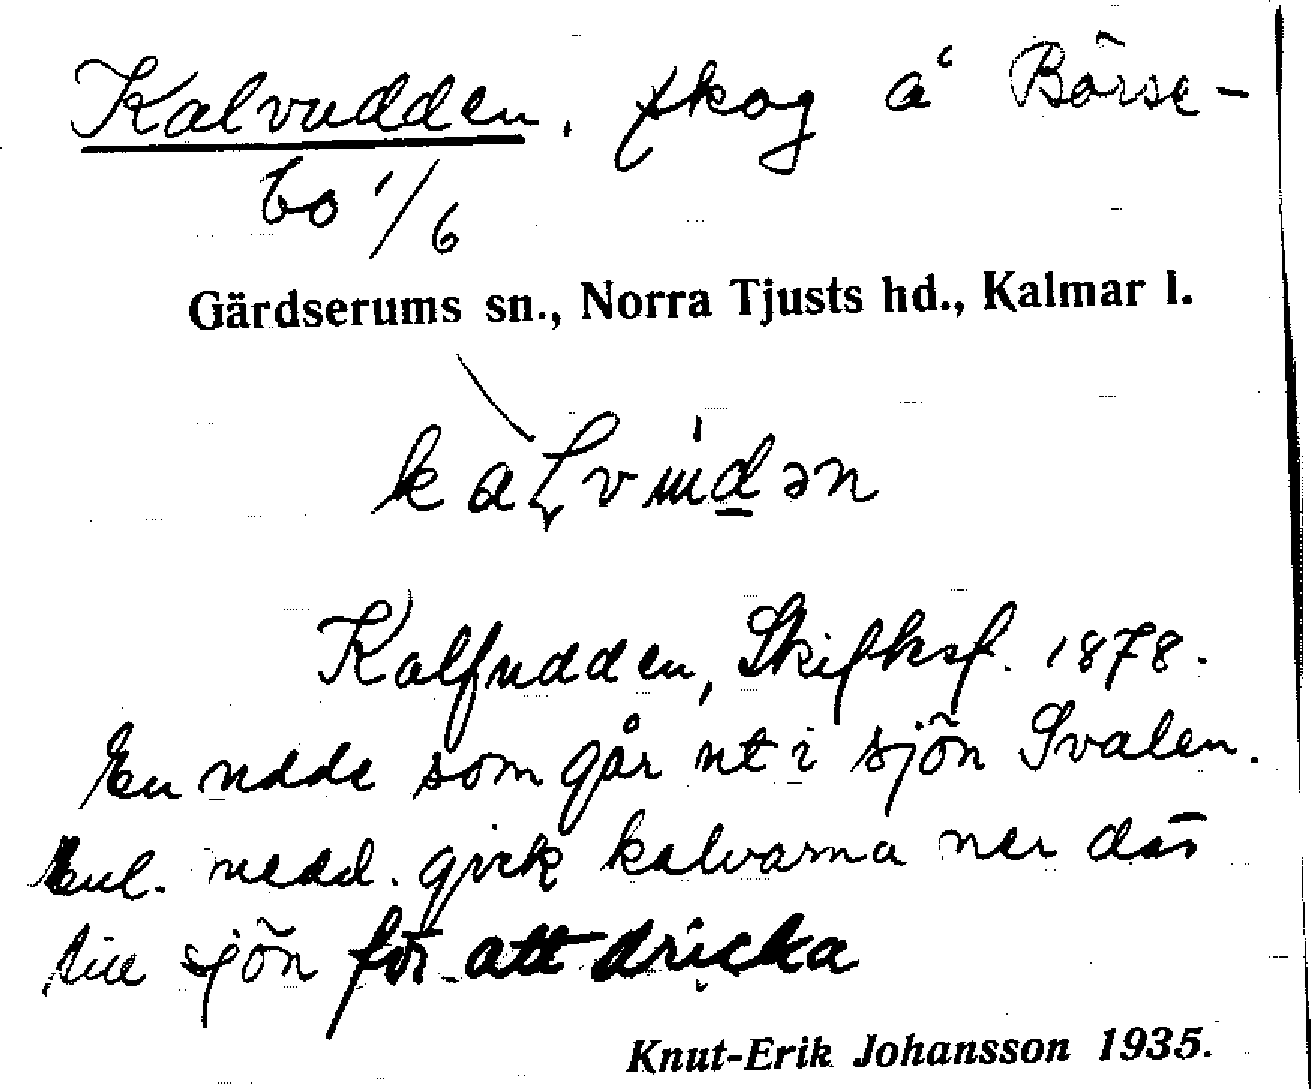 Kalvudden, skog å Börse-
bo 1/6
Gärdserums sn., Norra Tjusts hd., Kalmar l.
kaɭvudən
Kalfudden, Skifksf. 1878.
En udde som går ut i sjön Svalen.
Enl. medd. gick kalvarna ner där
till sjön för att dricka
Knut-Erik Johansson 1935.